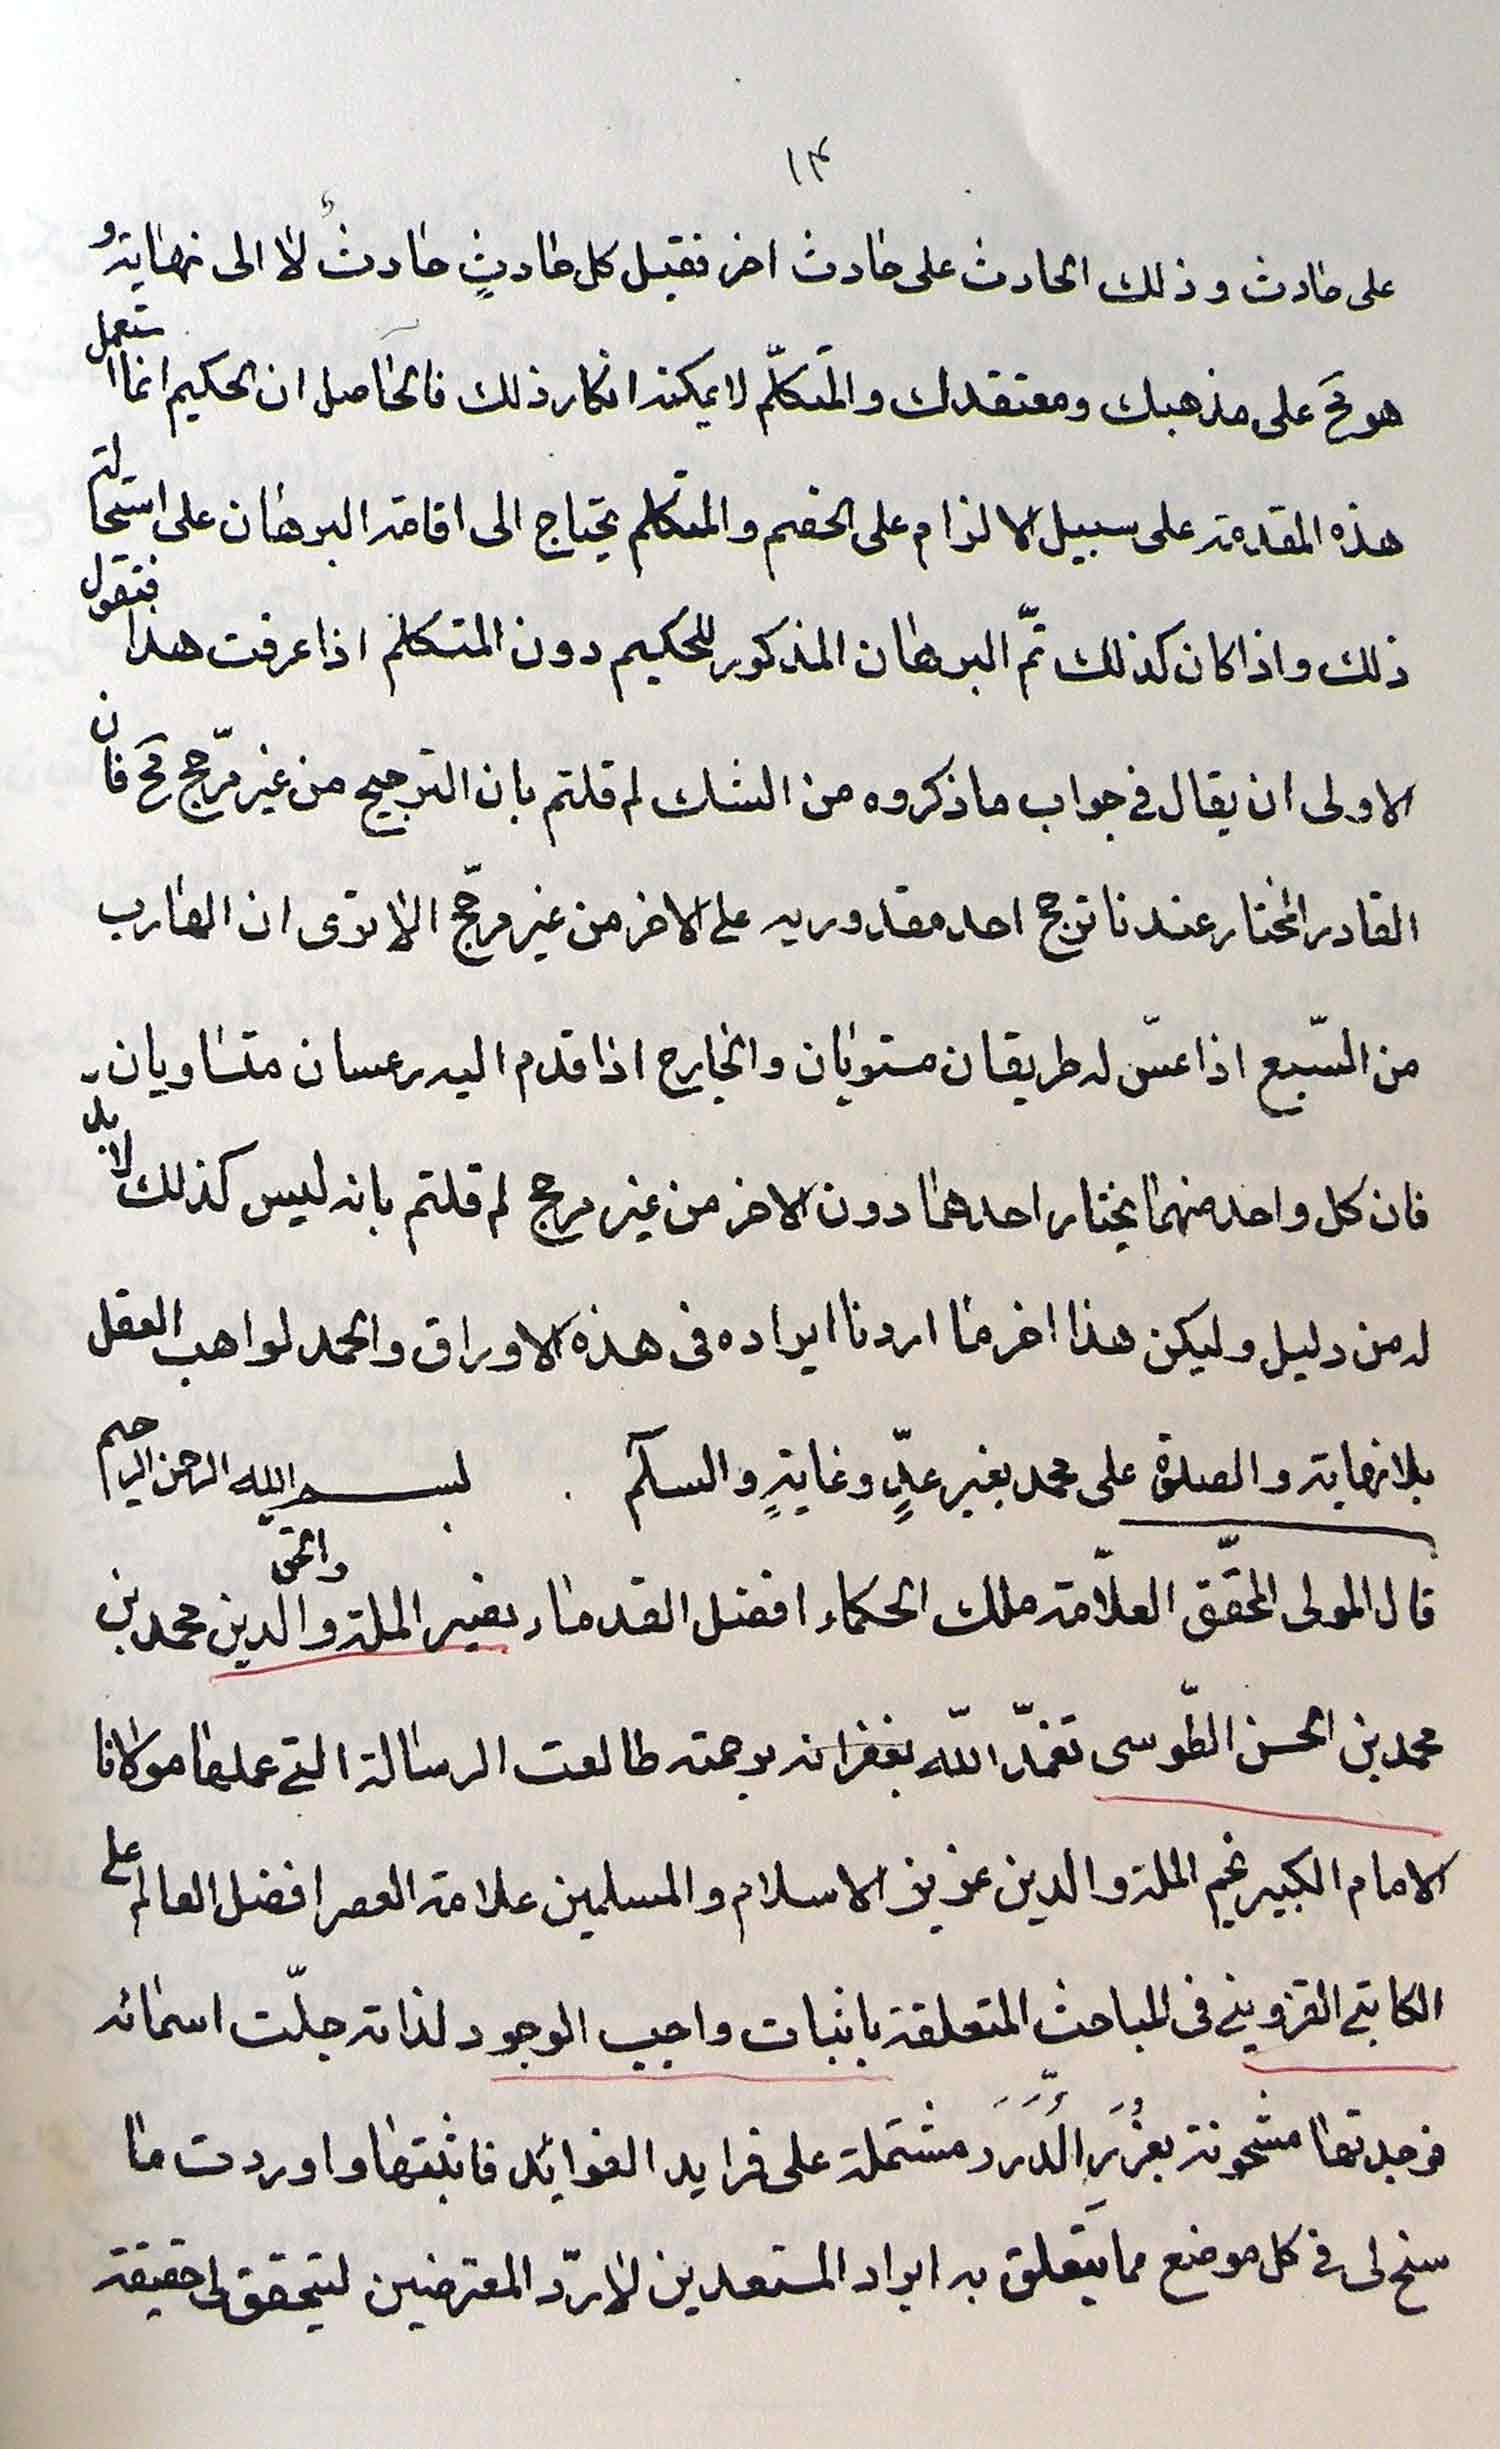 ١٣
على حادث و ذلك الحادث على حادث اخر فقبل كل حادثٍ حادثٌ لا الى نهاية و
هو مح على مذهبك و معتقدك و المتكلّم لا يمكنه انكار ذلك فالحاصل ان الحكيم انما استعمل
هذه المقدمة على سبيل الالزام على الخصم و المتكلم يحتاج الى اقامة البرهان على استحالة
ذلك و اذا كان كذلك تمّ البرهان المذكور للحكيم دون المتكلم اذا عرفت هذا فتقول
الاولى ان يقال في جواب ما ذكروه من الشك لم قلتم بان الترجيح من غير مرّجح مح فان
القادر المختار عندنا ترجح احد مقدوريه على الاخر من غير مرّجح الا ترى ان الهارب
من السّبع اذا عنّ له طريقان مستويان و الجايع اذا قدم اليه رغيفان متساويان
فان كل واحد منهما يختار احدهما دون الاخر من غير مرجح لم قلتم بانه ليس كذلك لا بد
له من دليل و ليكن هذا اخر ما اردنا ايراده فى هذه الاوراق و الحمد لواهب العقل
بلا نهاية و الصلوة على محمد بغير عدٍّ و غايةٍ و السلم بسم الله الرحمن الرحيم
قال المولى المحقّق العلّامة ملك الحكماء افضل القدماء نصير الملة و الحق و الدين محمد بن
محمد بن الحسن الطّوسى تغمّده اللّه بغفرانه برحمته طالعت الرسالة التى عملها مولانا
الامام الكبير نجم الملة و الدين عزيز الاسلام و المسلمين علامة العصر افضل العالم على
الكاتبى القزوينى فى المباحث المتعلقة باثبات واجب الوجود لذاته جلّت اسمائه
فوجدتها مشحونة بغُرَرِ الدُّرَر مشتملة على فرايد الفوائد فاثبتها و اوردت ما
سنح لى فى كل موضع مما يتعلق به ايراد المستعدين لا ردّ المعترضين ليتحقق لى حقيقة